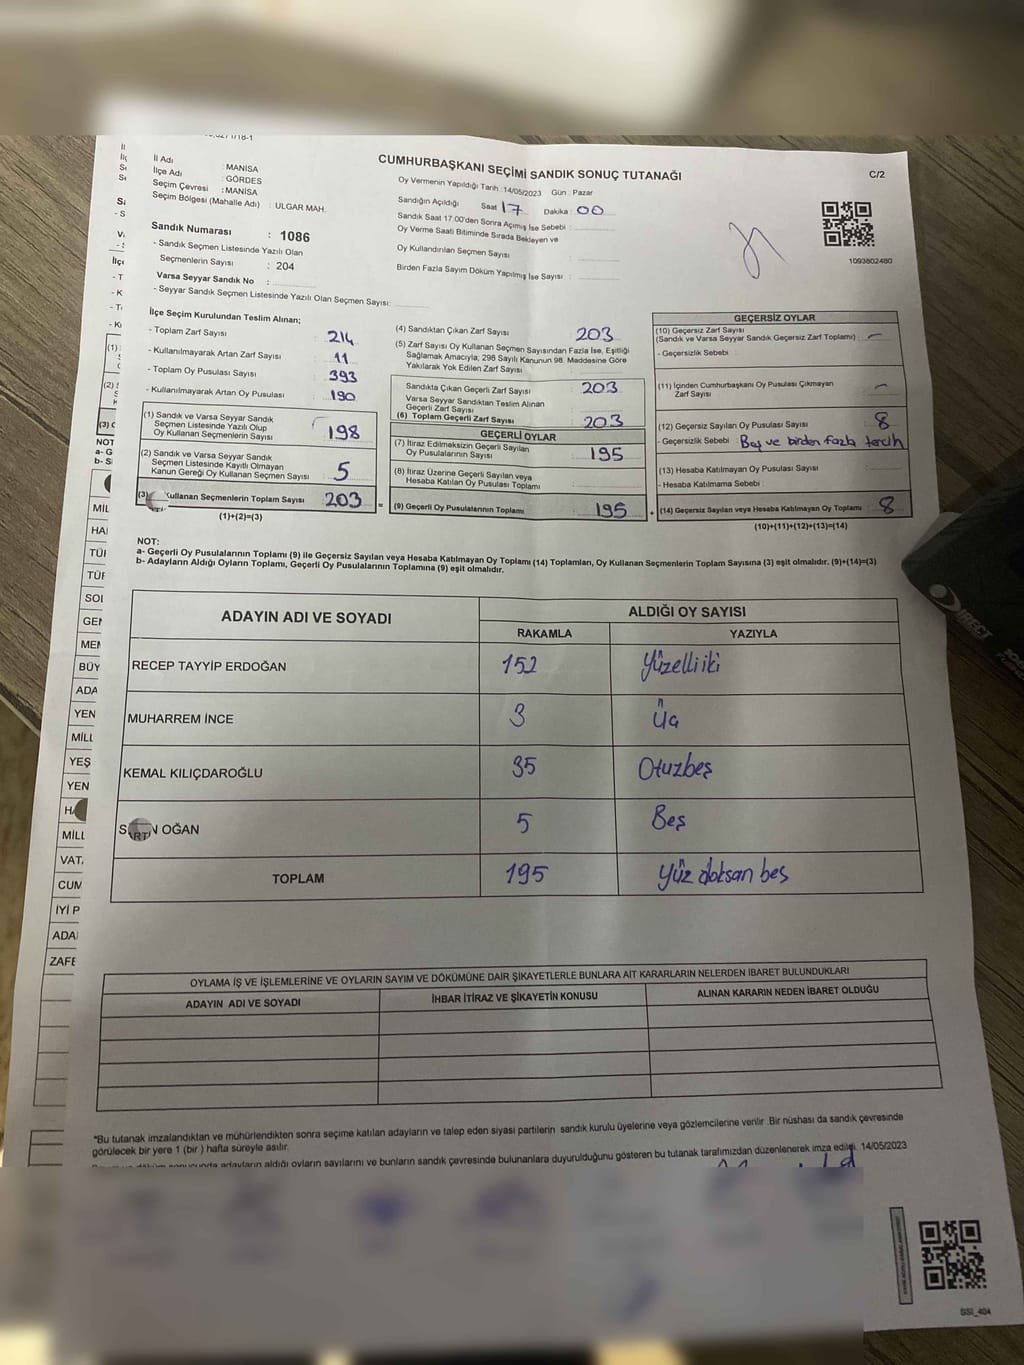 CUMHURBAŞKANI SEÇİMİ SANDIK SONUÇ TUTANAĞI
C/2
İl Adı : MANİSA
İlçe Adı : GÖRDES
Seçim Çevresi : MANİSA
Seçim Bölgesi (Mahalle Adı) : ULGAR MAH.
Sandık Numarası : 1086
- Sandık Seçmen Listesinde Yazılı Olan
Seçmenlerin Sayısı : 204
Varsa Seyyar Sandık No :
- Seyyar Sandık Seçmen Listesinde Yazılı Olan Seçmen Sayısı:
Oy Vermenin Yapıldığı Tarih : 14/05/2023 Gün : Pazar
Sandığın Açıldığı Saat 17 Dakika : 00
Sandık Saat 17:00'den Sonra Açımış İse Sebebi :
Oy Verme Saati Bitiminde Sırada Bekleyen ve
Oy Kullandırılan Seçmen Sayısı :
Birden Fazla Sayım Döküm Yapılmış İse Sayısı :
1093802480
İlçe Seçim Kurulundan Teslim Alınan;
- Toplam Zarf Sayısı : 214
- Kullanılmayarak Artan Zarf Sayısı : 11
- Toplam Oy Pusulası Sayısı : 393
- Kullanılmayarak Artan Oy Pusulası : 190
(1) Sandık ve Varsa Seyyar Sandık
Seçmen Listesinde Yazılı Olup
Oy Kullanan Seçmenlerin Sayısı : 198
(2) Sandık ve Varsa Seyyar Sandık
Seçmen Listesinde Kayıtlı Olmayan
Kanun Gereği Oy Kullanan Seçmen Sayısı : 5
(3) Kullanan Seçmenlerin Toplam Sayısı : 203
(1)+(2)=(3)
(4) Sandıktan Çıkan Zarf Sayısı : 203
(5) Zarf Sayısı Oy Kullanan Seçmen Sayısından Fazla İse, Eşitliği
Sağlamak Amacıyla; 298 Sayılı Kanunun 98. Maddesine Göre
Yakılarak Yok Edilen Zarf Sayısı :
Sandıkta Çıkan Geçerli Zarf Sayısı : 203
Varsa Seyyar Sandıktan Teslim Alınan
Geçerli Zarf Sayısı :
(6) Toplam Geçerli Zarf Sayısı : 203
GEÇERLİ OYLAR
(7) İtiraz Edilmeksizin Geçerli Sayılan
Oy Pusulalarının Sayısı : 195
(8) İtiraz Üzerine Geçerli Sayılan veya
Hesaba Katılan Oy Pusulası Toplamı :
(9) Geçerli Oy Pusulalarının Toplamı : 195
GEÇERSİZ OYLAR
(10) Geçersiz Zarf Sayısı
(Sandık ve Varsa Seyyar Sandık Geçersiz Zarf Toplamı) : -
- Geçersizlik Sebebi :
(11) İçinden Cumhurbaşkanı Oy Pusulası Çıkmayan
Zarf Sayısı : -
(12) Geçersiz Sayılan Oy Pusulası Sayısı : 8
- Geçersizlik Sebebi : Boş ve birden fazla tercih
(13) Hesaba Katılmayan Oy Pusulası Sayısı :
- Hesaba Katılmama Sebebi :
(14) Geçersiz Sayılan veya Hesaba Katılmayan Oy Toplamı : 8
(10)+(11)+(12)+(13)=(14)
NOT:
a- Geçerli Oy Pusulalarının Toplamı (9) ile Geçersiz Sayılan veya Hesaba Katılmayan Oy Toplamı (14) Toplamları, Oy Kullanan Seçmenlerin Toplam Sayısına (3) eşit olmalıdır. (9)+(14)=(3)
b- Adayların Aldığı Oyların Toplamı, Geçerli Oy Pusulalarının Toplamına (9) eşit olmalıdır.
ADAYIN ADI VE SOYADI ALDIĞI OY SAYISI
RAKAMLA YAZIYLA
RECEP TAYYİP ERDOĞAN 152 Yüzelliiki
MUHARREM İNCE 3 Üç
KEMAL KILIÇDAROĞLU 35 Otuzbeş
OĞAN 5 Beş
TOPLAM 195 Yüz doksan beş
OYLAMA İŞ VE İŞLEMLERİNE VE OYLARIN SAYIM VE DÖKÜMÜNE DAİR ŞİKAYETLERLE BUNLARA AİT KARARLARIN NELERDEN İBARET BULUNDUKLARI
ADAYIN ADI VE SOYADI İHBAR İTİRAZ VE ŞİKAYETİN KONUSU ALINAN KARARIN NEDEN İBARET OLDUĞU
*Bu tutanak imzalandıktan ve mühürlendikten sonra seçime katılan adayların ve talep eden siyasi partilerin sandık kurulu üyelerine veya gözlemcilerine verilir. Bir nüshası da sandık çevresinde
görülecek bir yere 1 (bir ) hafta süreyle asılır.
adayların aldığı oyların sayılarını ve bunların sandık çevresinde bulunanlara duyurulduğunu gösteren bu tutanak tarafımızdan düzenlenerek imza edildi. 14/05/2023
MİL
HAI
TÜI
TÜF
SOL
GEI
MEI
BÜY
ADA
YEN
MİLL
YEŞ
YEN
MİLL
VAT
CUM
İYİ P
ADA
ZAFE
DIRECT